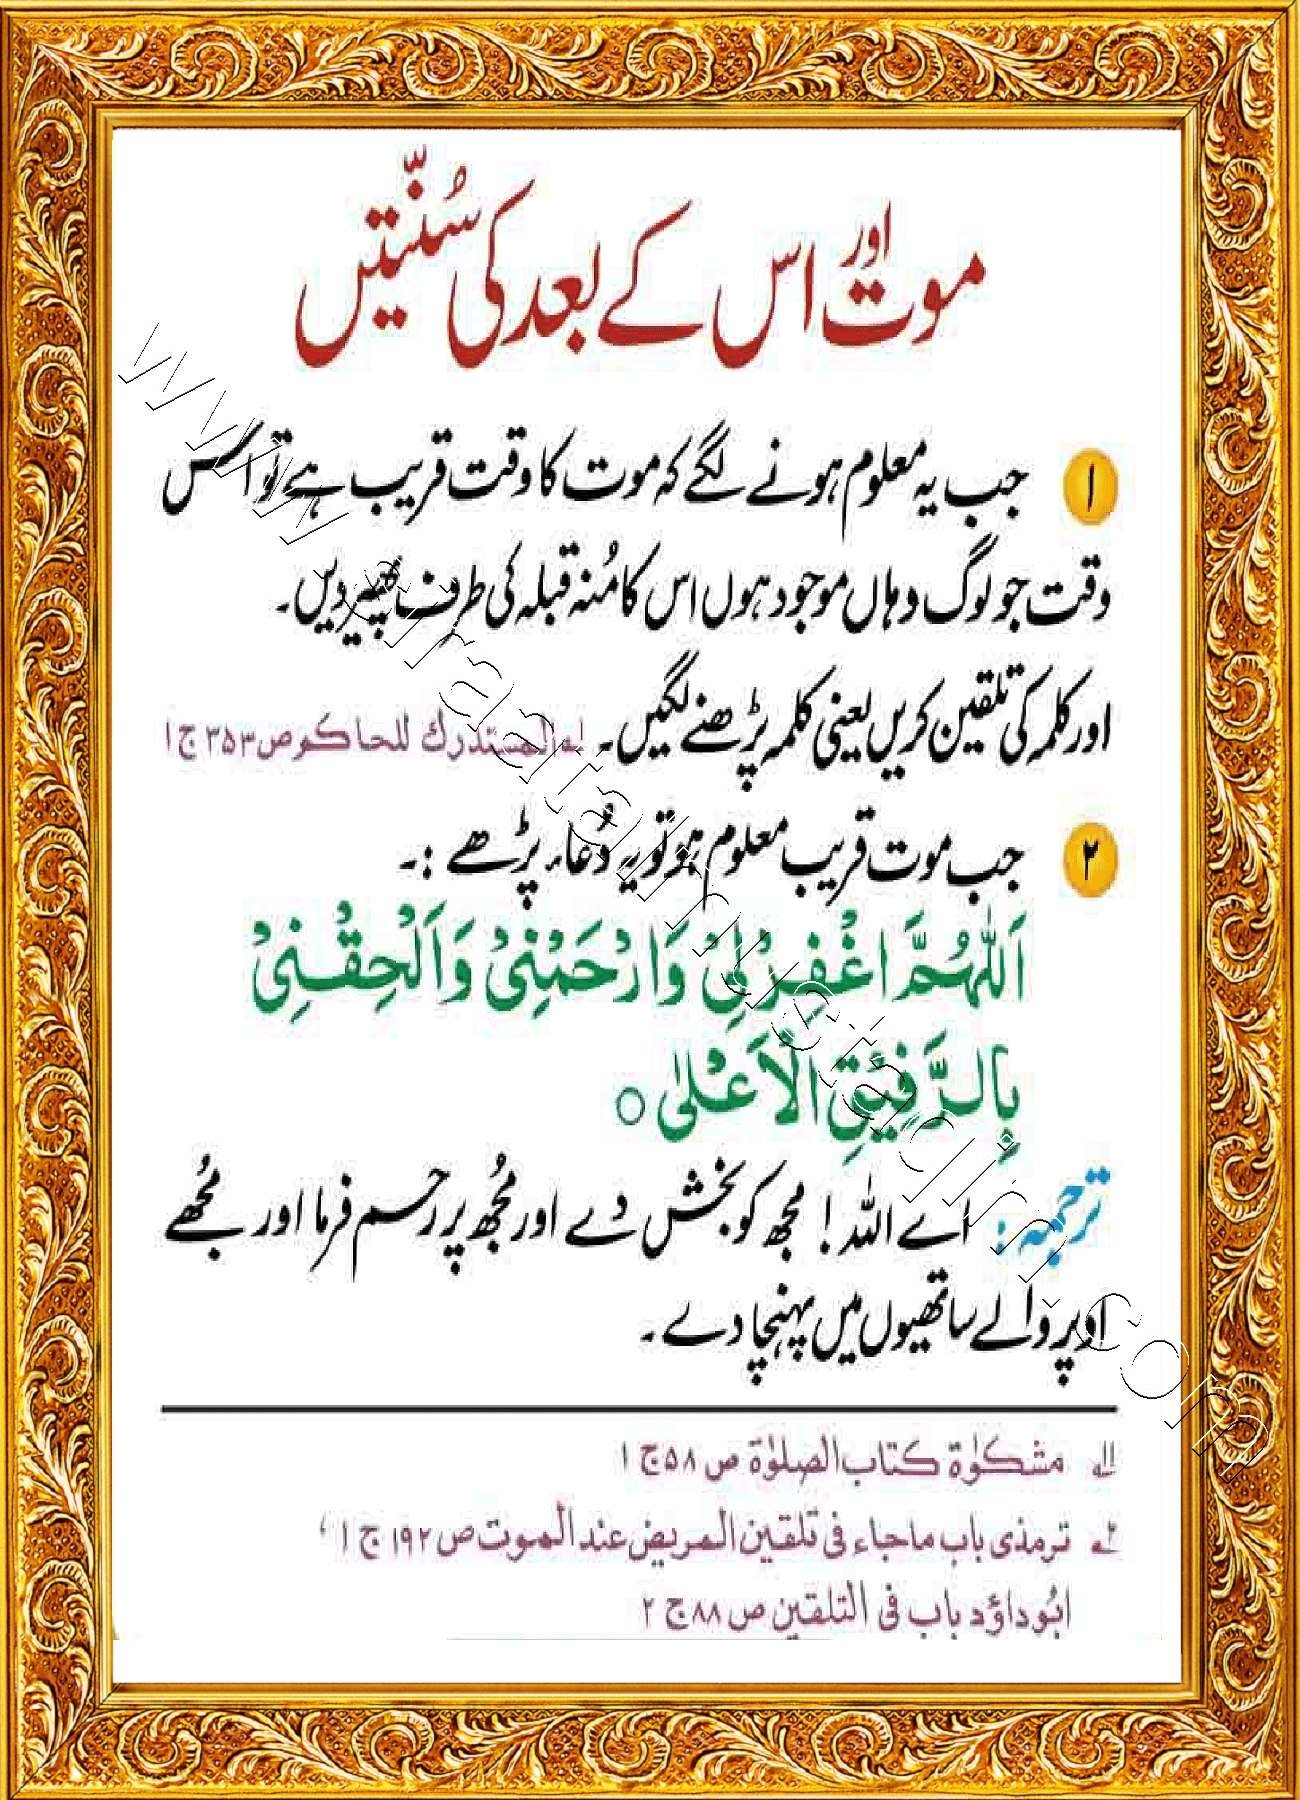 موت اور اس کے بعد کی سُنّتیں
۱ جب یہ معلوم ہونے لگے کہ موت کا وقت قریب ہے تو اس
وقت جو لوگ وہاں موجود ہوں اس کا مُنہ قبلہ کی طرف پھیر دیں۔
اور کلمہ کی تلقین کریں یعنی کلمہ پڑھنے لگیں۔ لہ المستدرک للحاکم ص۳۵۳ ج۱
۲ جب موت قریب معلوم ہو تو یہ دُعاء پڑھے :۔
اَللّٰهُمَّ اغْفِرْلِیْ وَارْحَمْنِیْ وَاَلْحِقْنِیْ
بِالرَّفِیْقِ الْاَعْلٰی ○
ترجمہ: اے اللہ! مجھ کو بخش دے اور مُجھ پر رحم فرما اور مُجھے
اوپر والے ساتھیوں میں پہنچا دے۔
لہ مشکوٰة کتاب الصلوٰة ص ۵۸ ج ۱
۲ہ ترمذی باب ماجاء فی تلقین المریض عند الموت ص ۱۹۲ ج ۱،
ابُوداؤد باب فی التلقین ص ۸۸ ج ۲